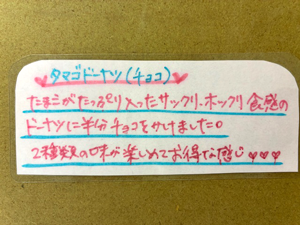 タマゴドーヤツ(チョコ)
たまごがたっぷり入ったサックリ、ホックリ食感の
ドーヤツに半分チョコをかけました。
2種類の味が楽しめてお得な感じ♥♥♥